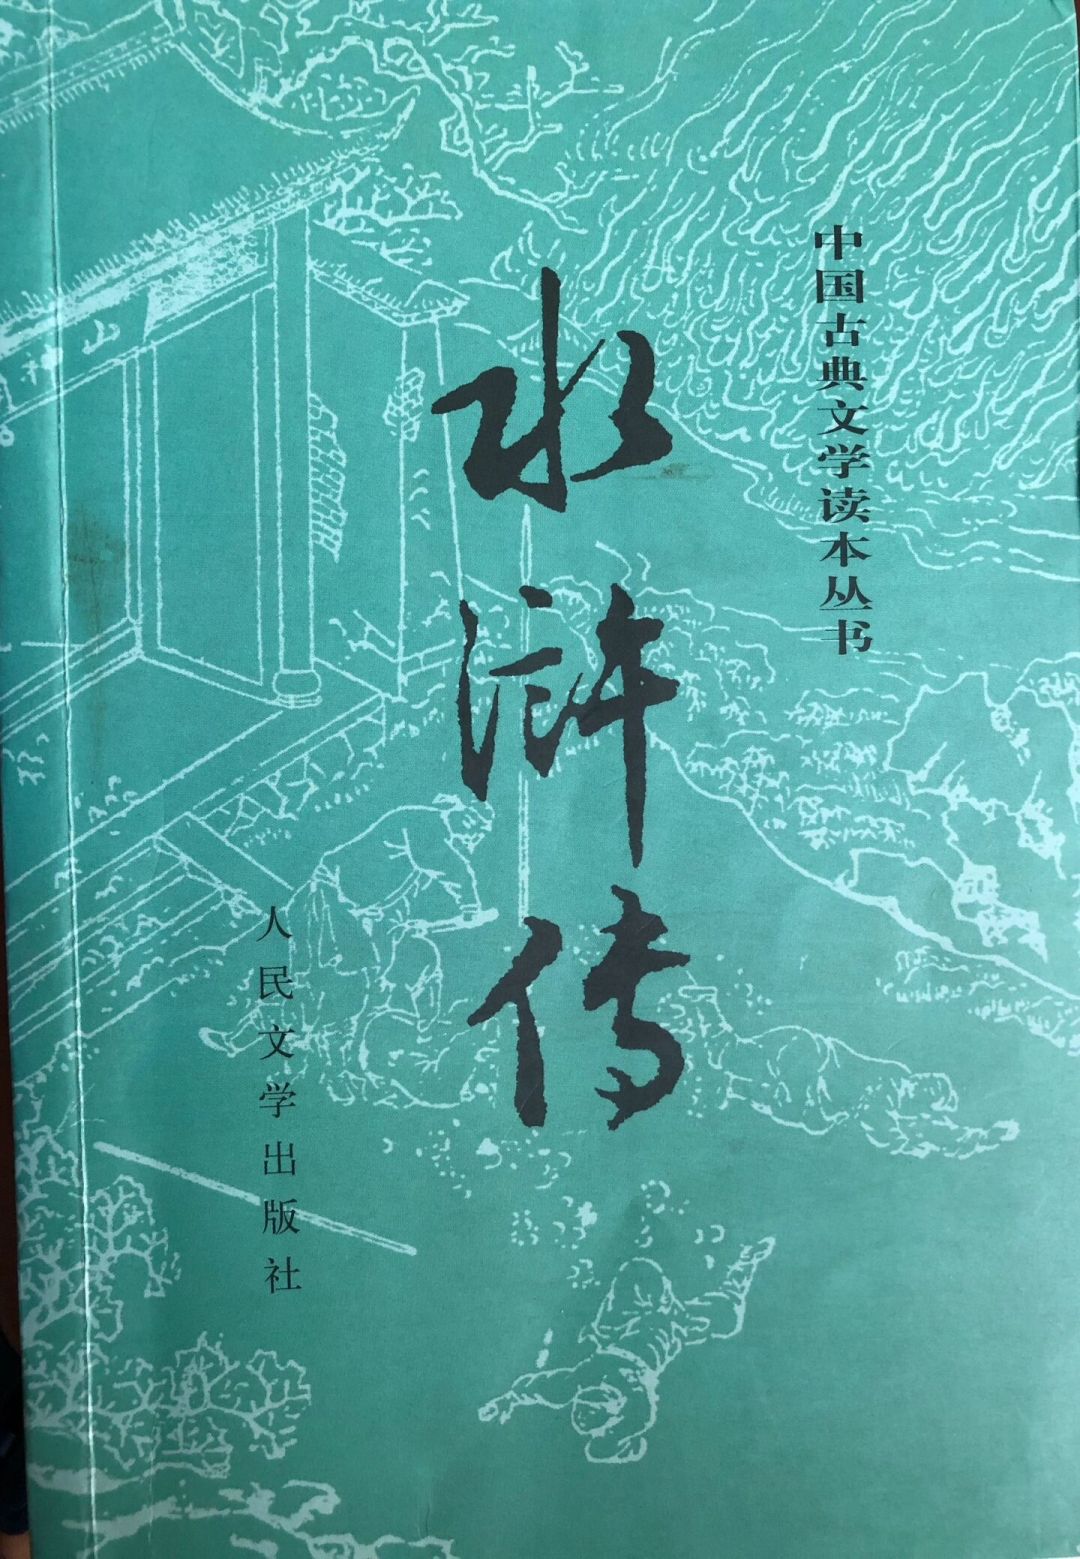 中国古典文学读本丛书
水浒传
人民文学出版社
山神